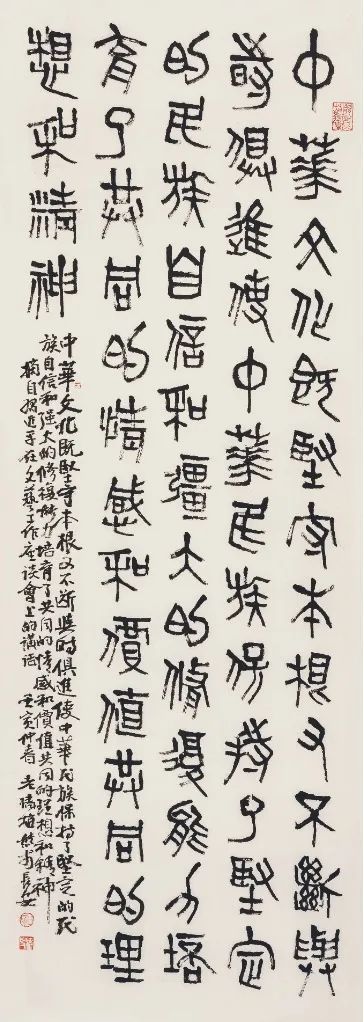 中華文化既堅守本根又不斷與
時俱進使中華民族保持了堅定
的民族自信和彊大的修復能力培
育了共同的情感和價值共同的理
想和精神
中華文化既堅守本根又不断與時俱進使中華民族保持了堅定的民
族自信和強大的修復能力培育了共同的情感和價值共同的理想和精神
摘自習近平在文藝工作座談會上的講話 壬寅仲春